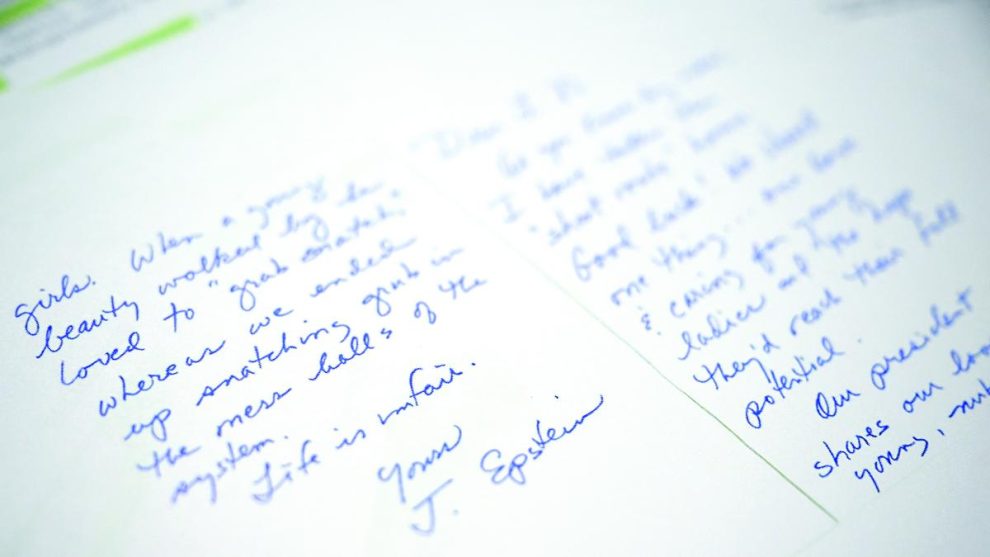 girls. When a young
beauty walked by he
loved to "grab snatch,"
whereas we ended
up snatching grub in
the mess halls of the
system.
Life is unfair.
Yours
J. Epstein
Dear L.N.
As you know by now
I have taken the
"short route" home.
Good luck! We shared
one thing... our love
& caring for young
ladies and the hope
they'd reach their full
potential.
Our president
shares our
young,